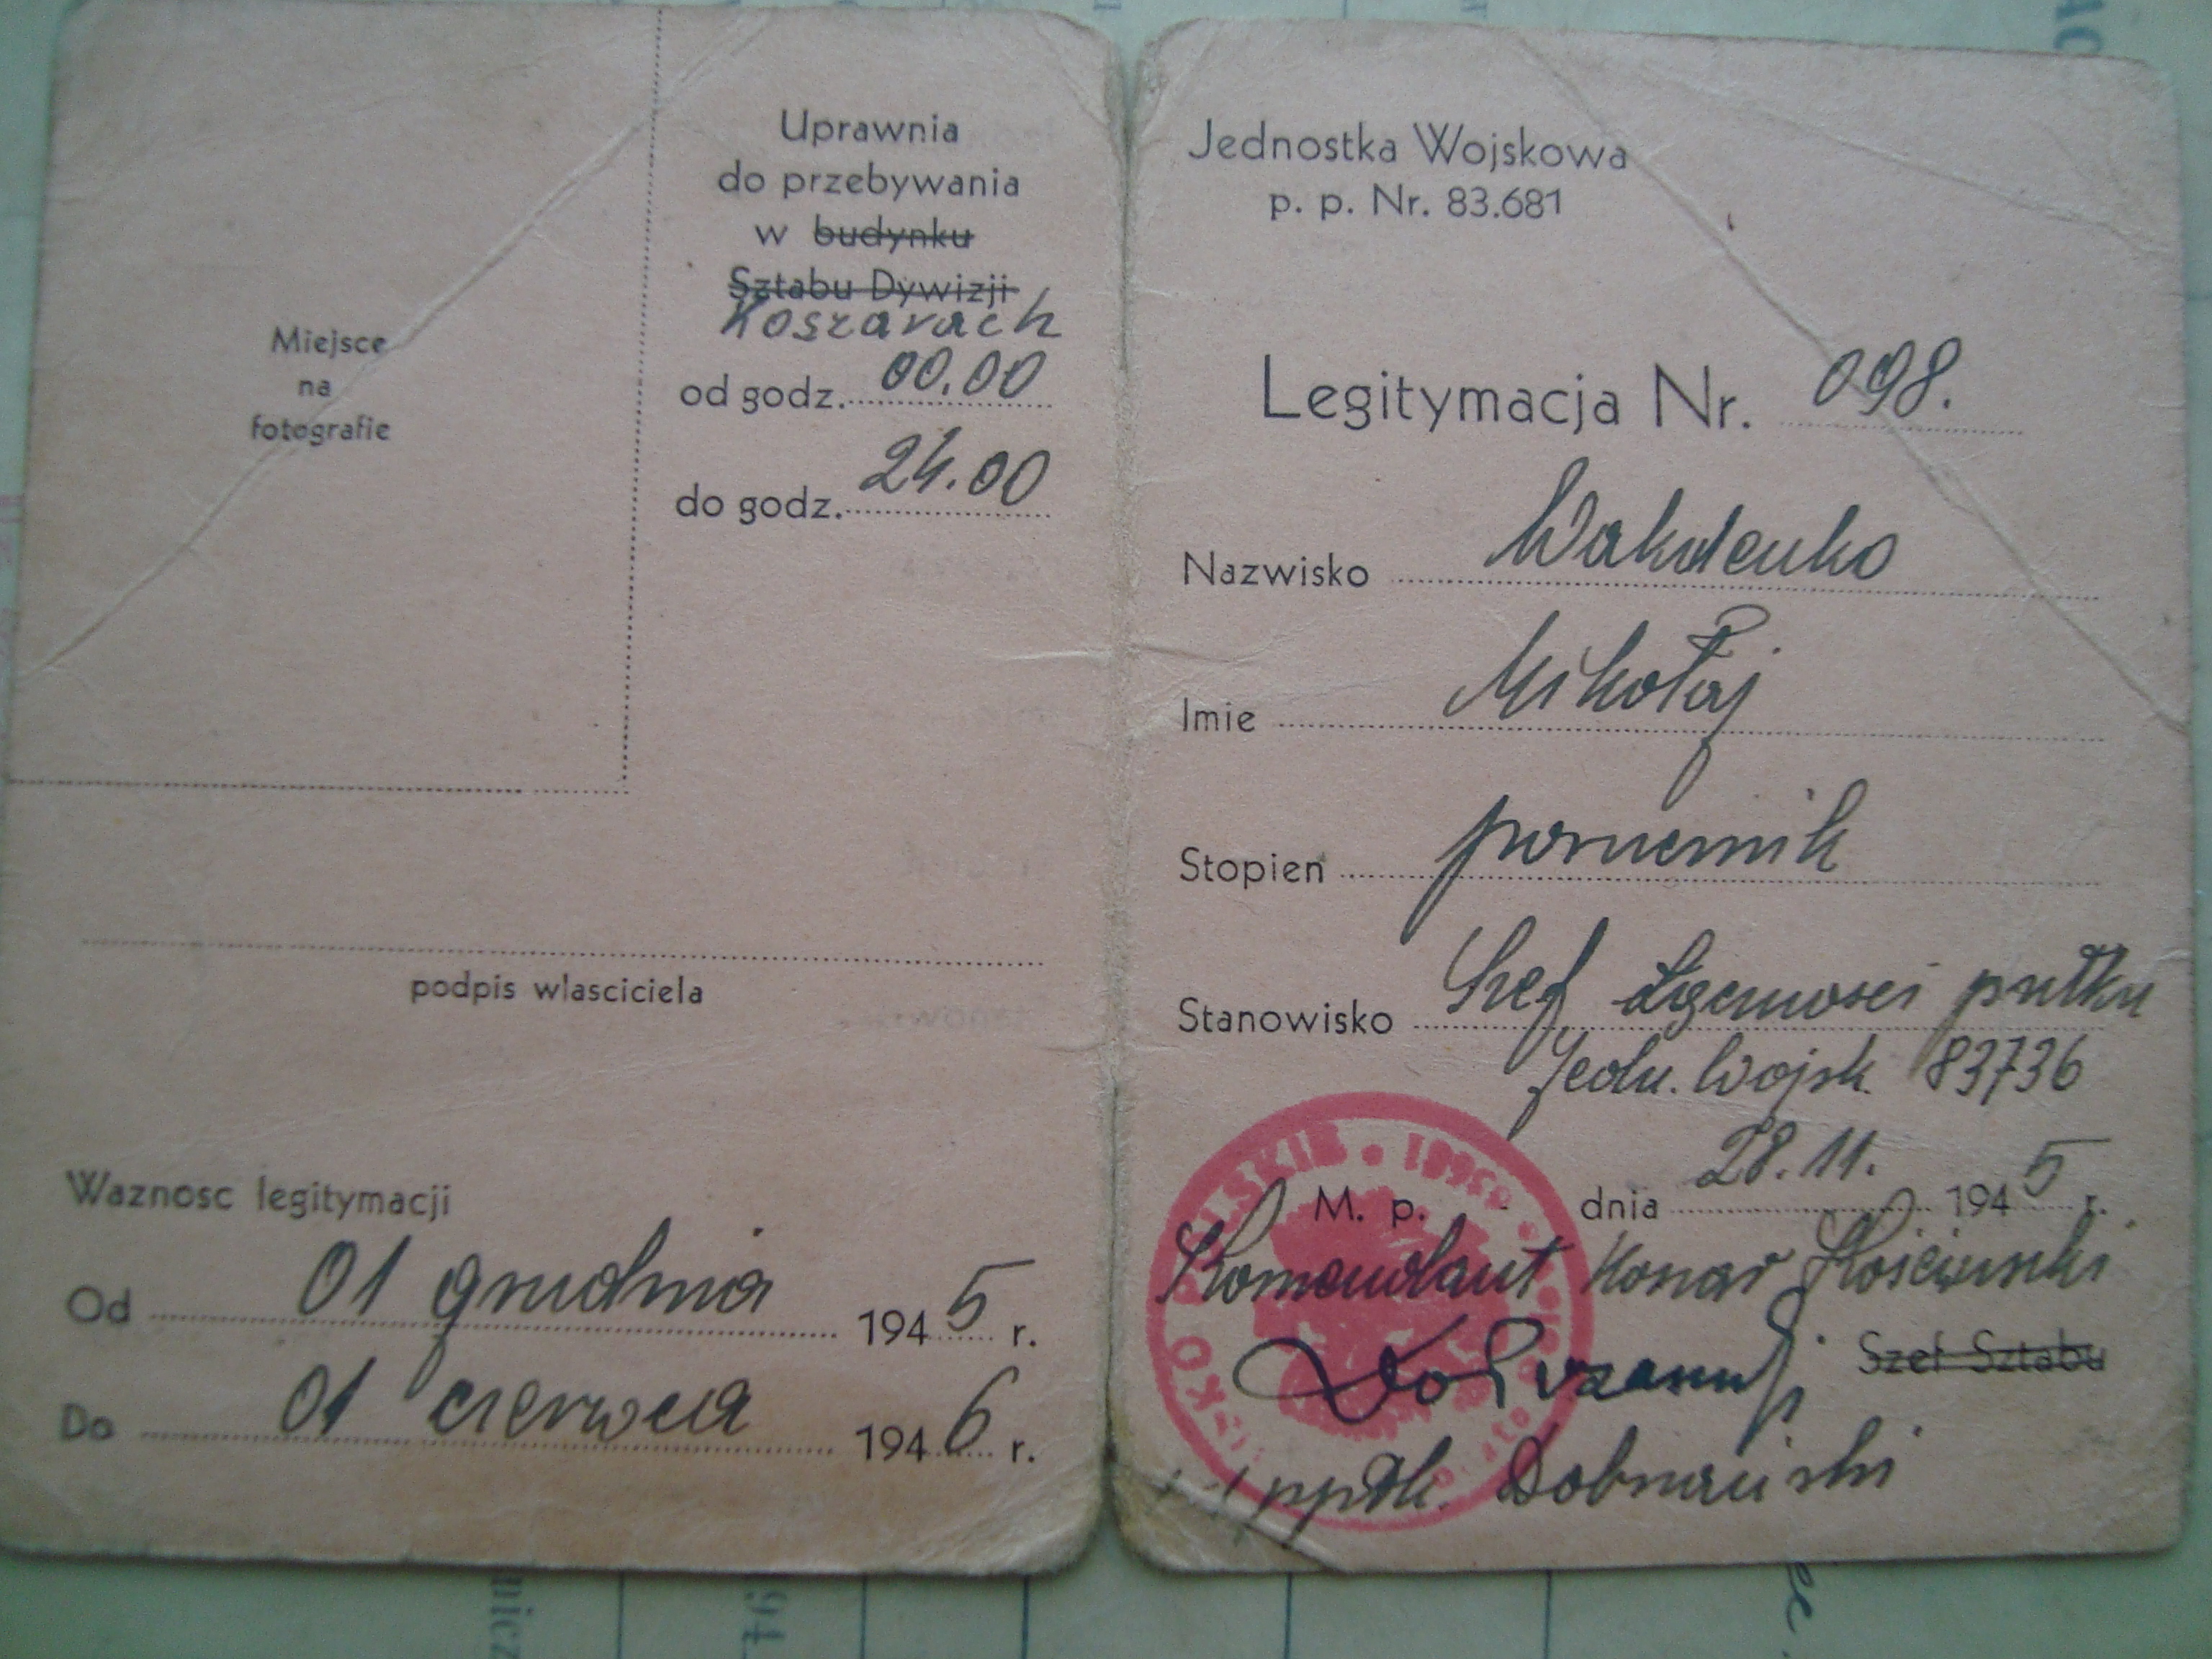 Miejsce
na
fotografie
Uprawnia
do przebywania
w budynku
Sztabu Dywizji
Koszarach
od godz. 00.00
do godz. 24.00
podpis wlasciciela
Waznosc legitymacji
Od 01 grudnia 1945 r.
Do 01 czerwca 1946 r.
Jednostka Wojskowa
p. p. Nr. 83.681
Legitymacja Nr. 098.
Nazwisko Wakulenko
Imie Mikołaj
Stopien porucznik
Stanowisko Szef Łączności pułku
Jedn. Wojsk. 83736
M. p. dnia 28.11. 1945 r.
Komendant Koszar
Szef Sztabu
ppłk.